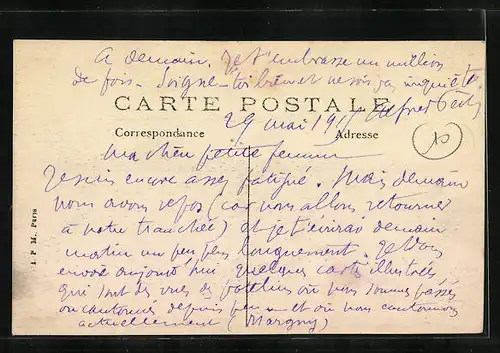 A demain. Je t'embrasse un million
de fois. Soigne-toi bien et ne sois pas inquiète.
CARTE POSTALE
Alfred
29 mai 191
Correspondance
Adresse
10
ma chère petite femme
Je suis encore assez fatigué. Mais demain
nous avons repos (car nous allons retourner
à notre tranchée) et je t'écrirai demain
matin un peu plus longuement. Je
envoie aujourd'hui quelques cartes illustrées
qui sont des vues des où nous sommes passés
ou cantonnés depuis peu et où nous cantonnons
actuellement (Margny)
I P M, Paris